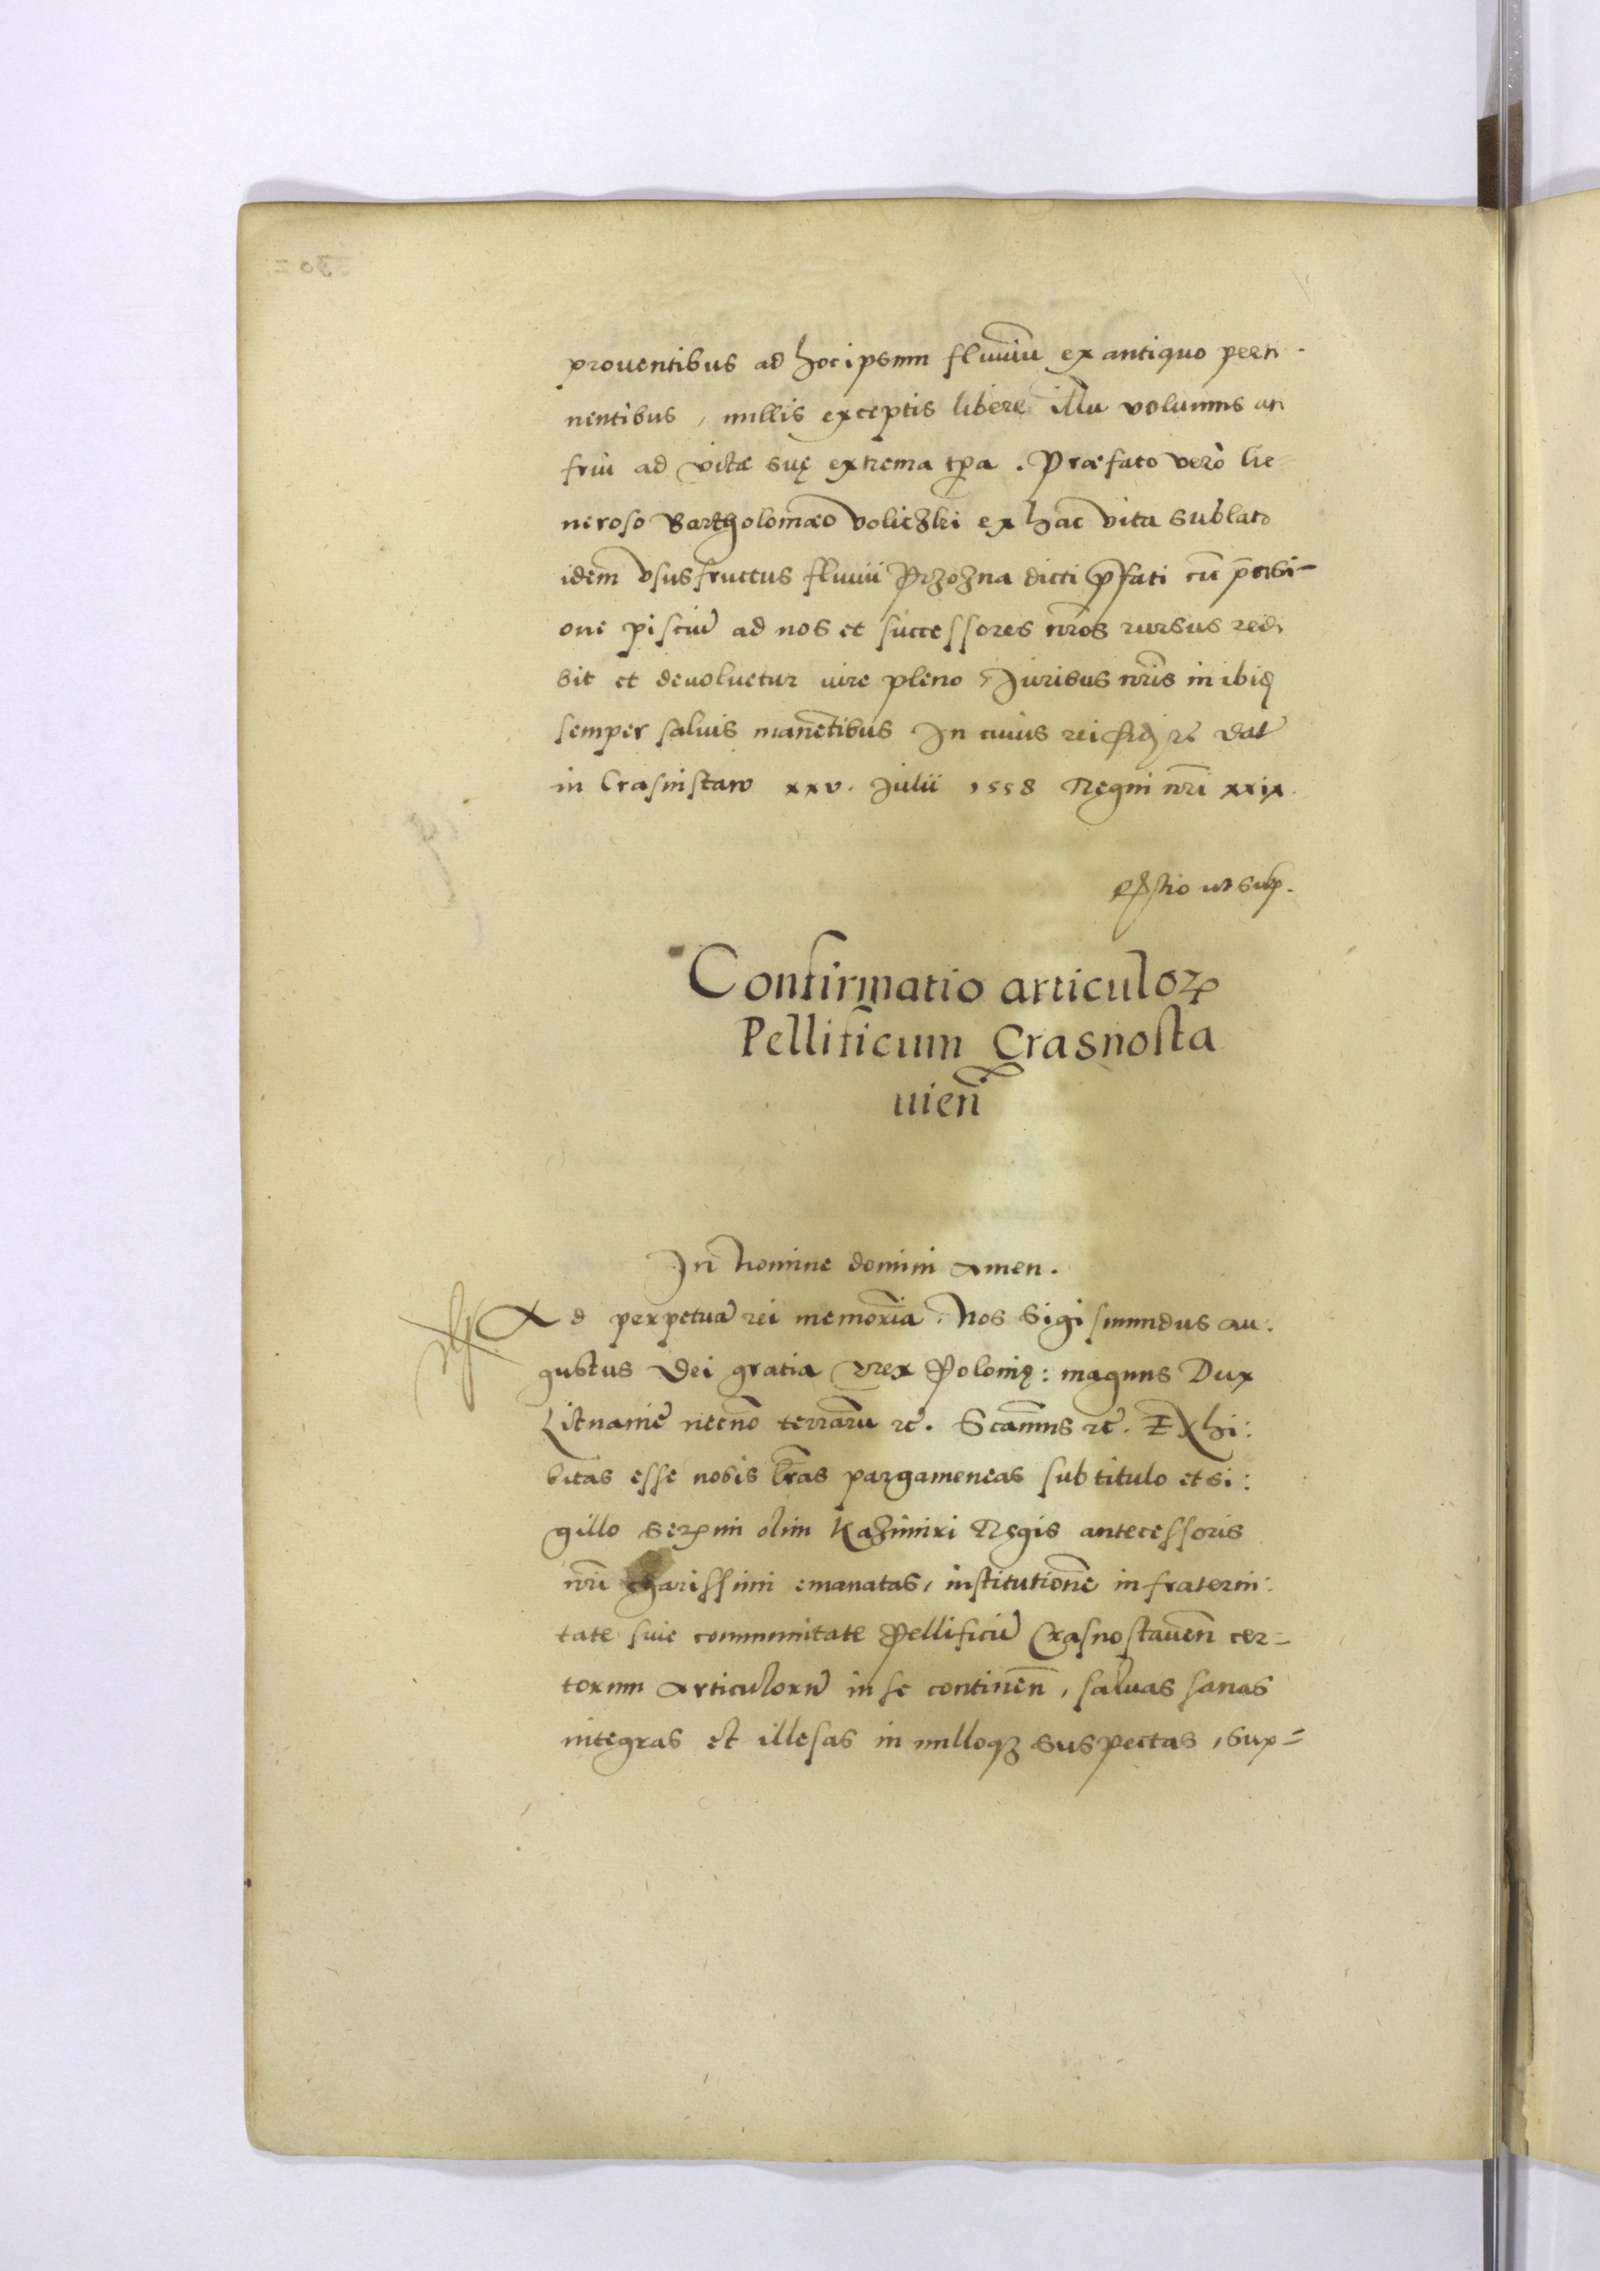 proventibus ad hoc ipsum fluviũ ex antiquo perti-
nentibus, nullis exceptis libere illũ volumus
frui ad vitæ suę extrema tp̃a. Præfato verò Ge
neroso Bartholomæo Voliczki ex hac vita sublato
idem̃ usus fructus fluvii Przozna dicti p̃fati cũ p̃nsi-
one pisciũ ad nos et successores nr̃os rursus redi
bit et devolvetur iure pleno Juribus nr̃is in ibiđ
semper salvis manẽtibus In cuius rei fiđ ꝛc̃ dat̃
in Crasnistaw xxv. Julii 1558 Regni nr̃i xxix.
ut sup.
Confirmatio articuloꝝ
Pellificum Crasnosta
vien̄
In Nomine domini Amen.
Ad perpetuã rei memoriã. Nos Sigismundus Au:
gustus Dei gratia Rex Polonię: magnus Dux
Lituanie necnõ terrarũ ꝛc̃. Scãmus ꝛc̃. Exhi:
bitas esse nobis lr̃as pargameneas sub titulo et si:
gillo Serñmi olim Kazimiri Regis antecessoris
nr̃i charissimi emanatas, institutionẽ in fraterni:
tate sive communitate Pellificiũ Crasnostavien̄ cer=
torum Articulorũ in se continen̄, salvas sanas
integras et illesas in nulloqꝫ suspectas, sup=